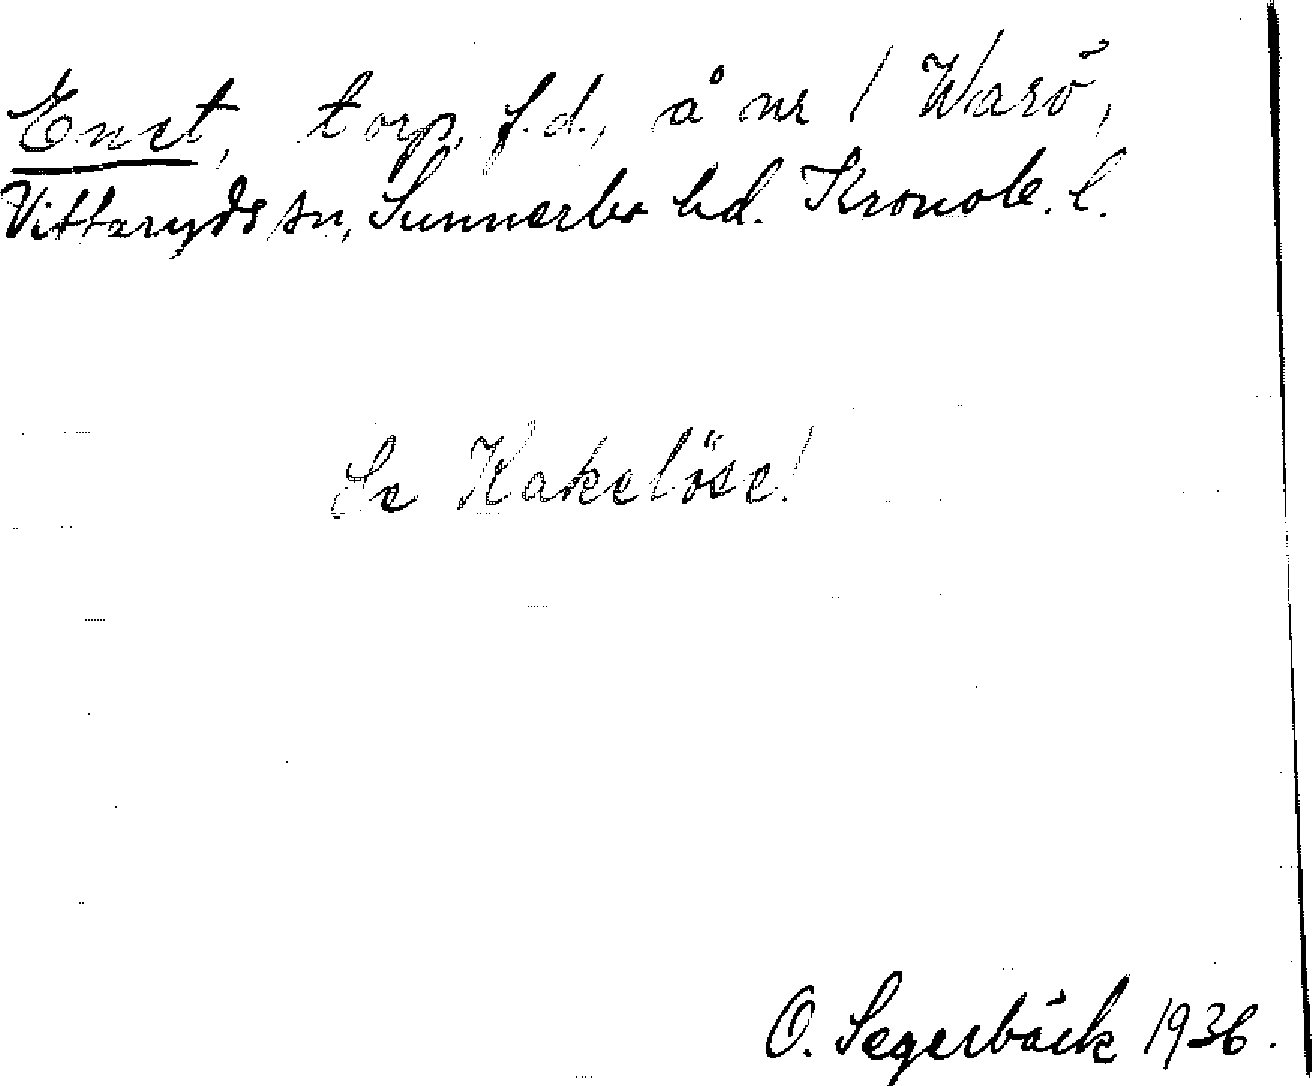 Enet, torp, f.d., å nr 1 Warö,
Vittaryds sn, Sunnerbo hd. Kronob. l.
Se Kakelöse!
O. Segerbäck 1936.